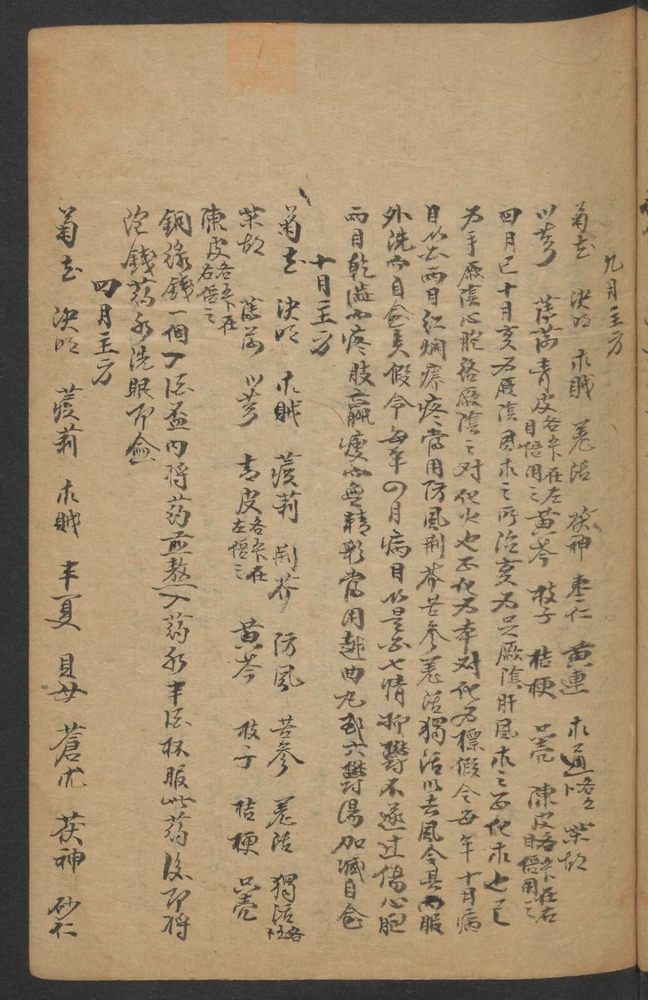 九月主方
菊花 決明 木賊 羌活 茯神 枣仁 黄連 木通各二卜 柴胡
川芎 蔓荊 青皮各朩在左目倍用之 黄芩 枝子 桔梗 只壳 陳皮各朩在右目倍用之
四月巳十月亥为厥陰風木之所治亥为足厥陰肝風木之正化木也巳
为手厥陰心胞絡厥陰之对化火也正化为本对化为標假令每年十月病
目必去两目红烂痒疼當用防風荆芥苦参羌活獨活以去風令其内服
外洗而目愈矣假令每年四月病目必是名七情抑鬱不遂过傷心胞
两目乾澁而疼肢羸瘦而無精彩當用越曲丸或六鬱湯加减自愈
十月主方
菊花 決明 木賊 蒺莉 荆芥 防風 苦参 羌活 獨活各
柴胡 蔓荊 川芎 青皮各朩在左倍之 黄芩 枝子 桔梗 只壳
陳皮各朩在右倍之
銅綠錢一個入酒盃内将药煎熬入药水半酒杯服此药後即将
泡錢药水洗眼即愈
四月主方
菊花 決明 蒺莉 木賊 半夏 貝母 蒼朮 茯神 砂仁